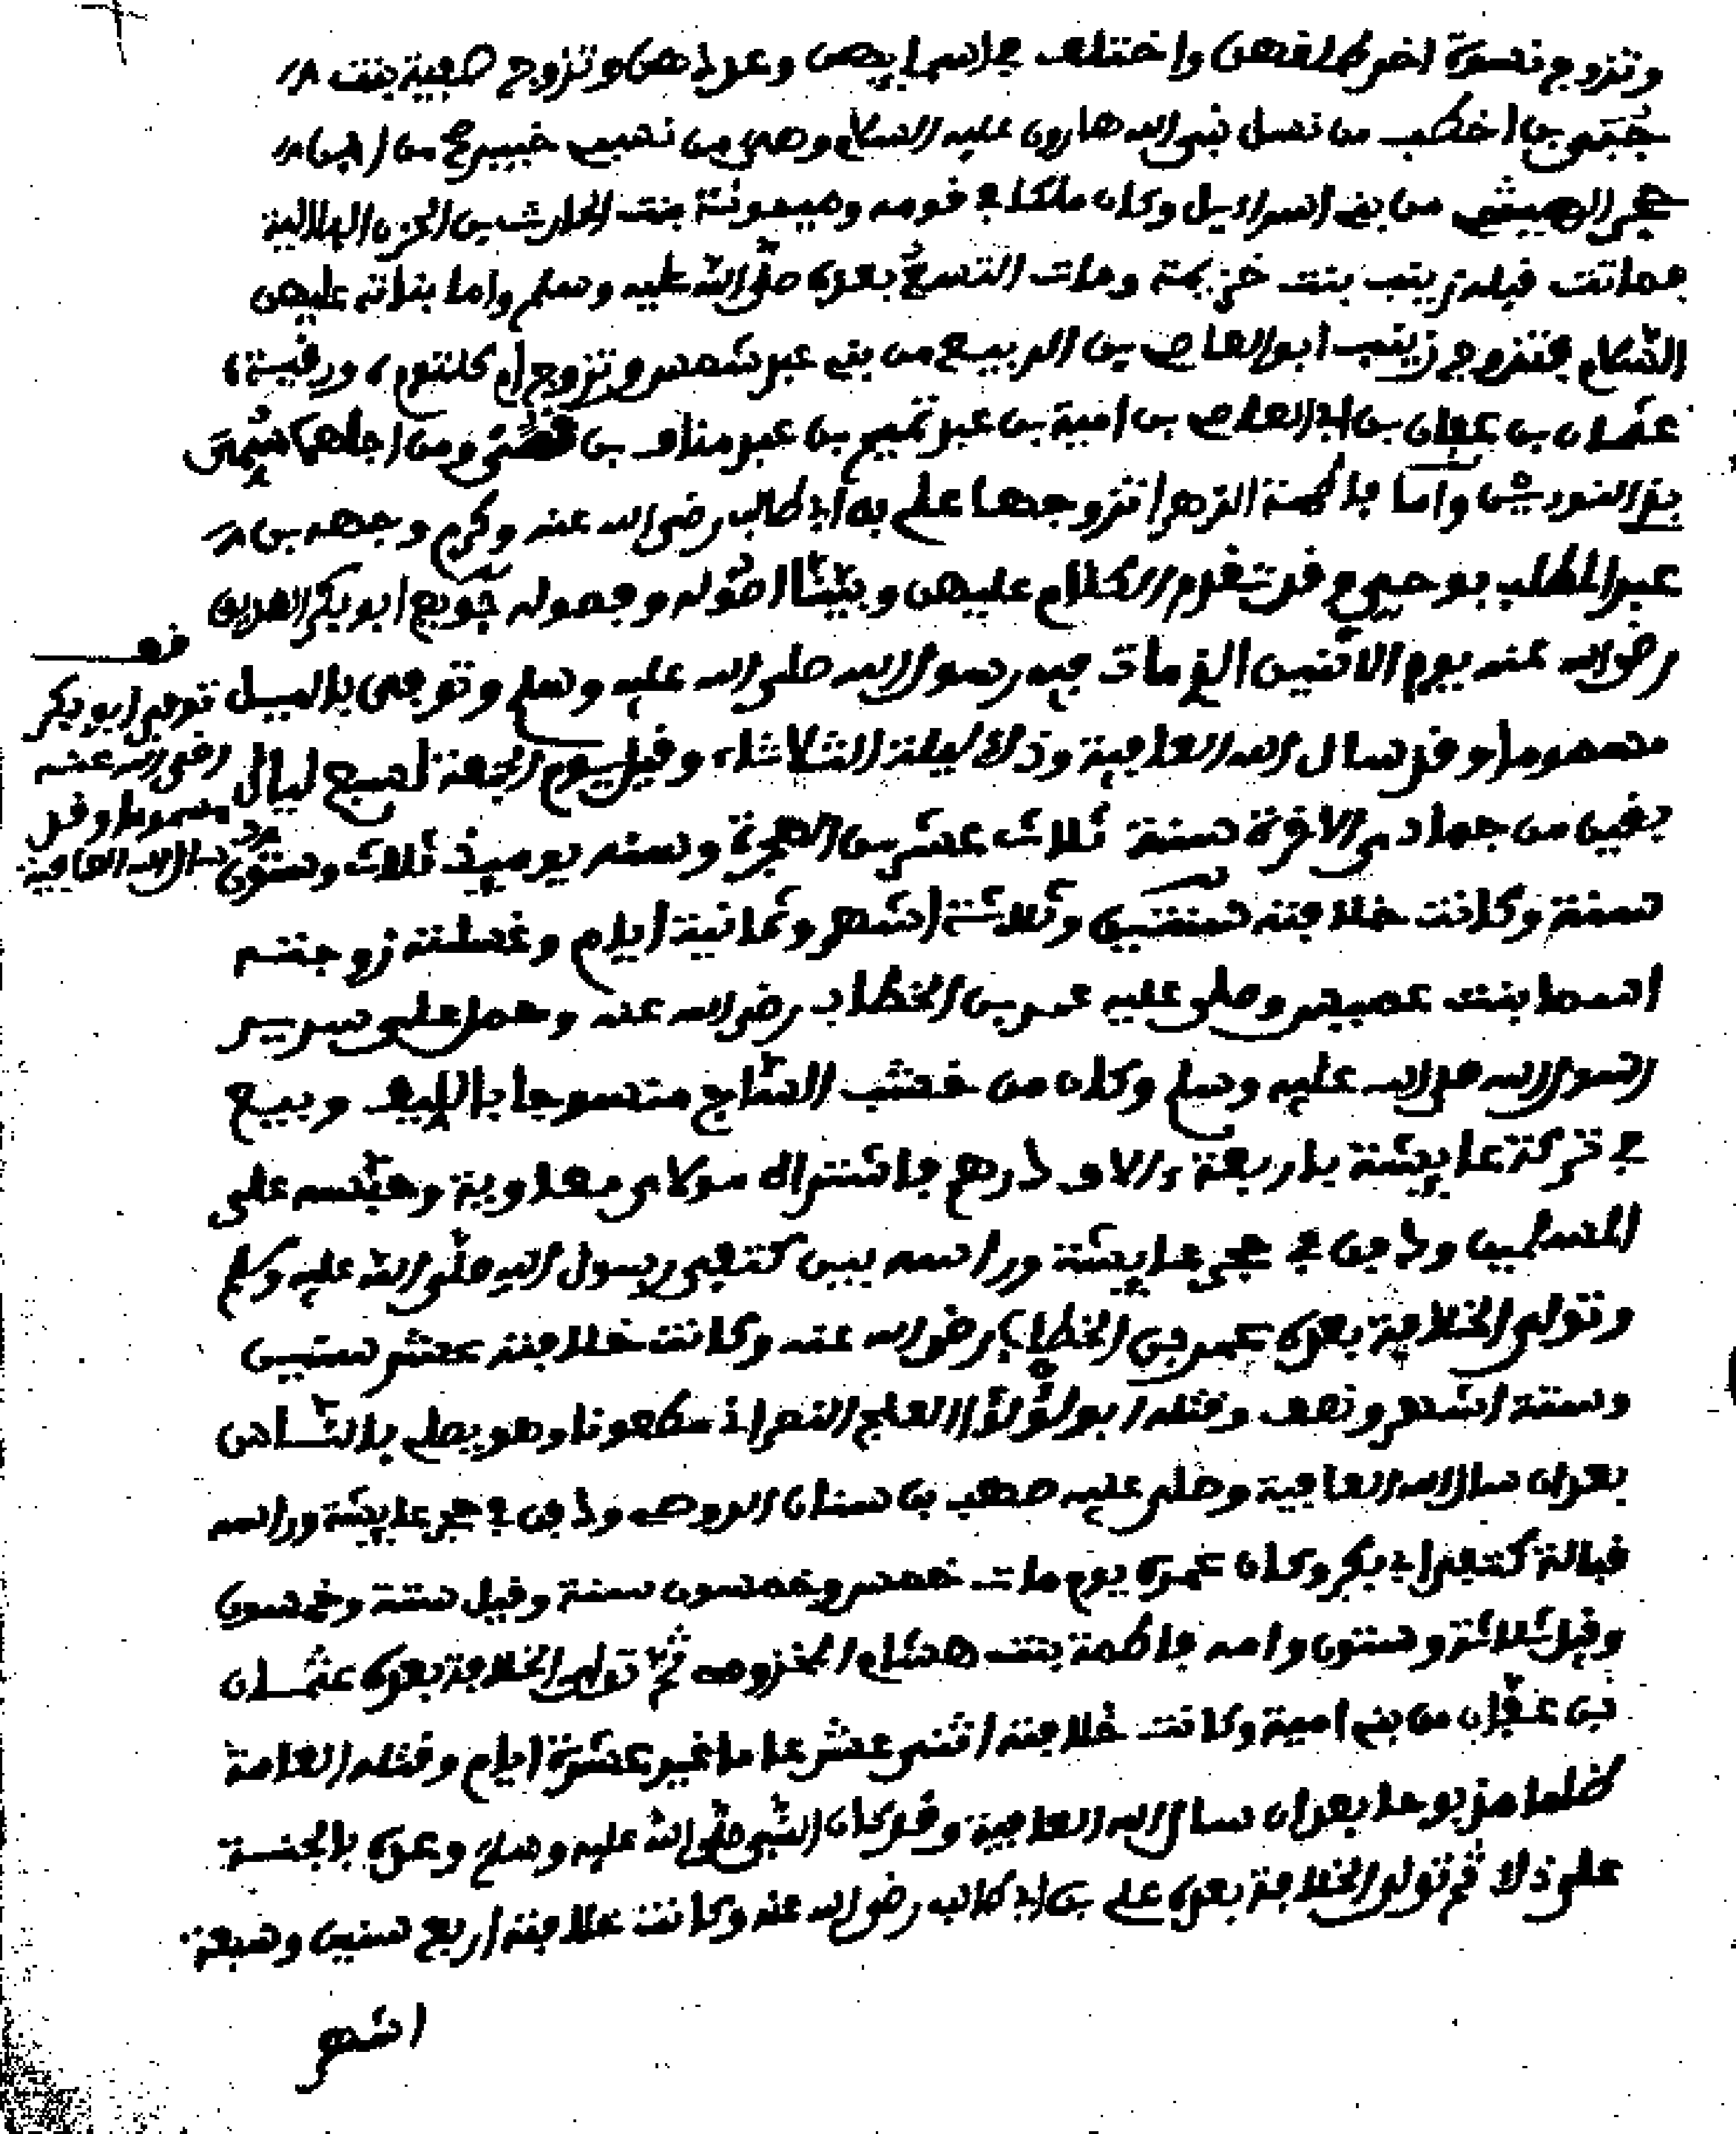 وتزوج نسوة اخر طلقهن واختلف في اسمايهن وعددهن وتزوج صفية بنت
حيي بن اخطب من نسل نبي الله هارون عليه السلام وهي من نفيس خيبر من
من بني اسراءيل وكان ملكا في قومه وميمونة بنت الحارث بن الحزن الهلالية
فماتت قبله زينب بنت خزيمة ومات التسع بعده صلى الله عليه وسلم واما بناته عليهن
السلام فتزوج زينب ابو العاص بن الربيع من بني عبد شمس وتزوج ام كلثوم ورقية
عثمان بن عفان بن ابي العاص بن امية بن عبد شمس بن عبد مناف بن قصي ومن اجلهما سمي
بذي النورين واما فاطمة الزهرا تزوجها علي بن ابي طالب رضي الله عنه وكرم وجهه بن
عبد المطلب بوحي وقد تقدم الكلام عليهن وبيننا اصوله وفصوله بويع ابو بكر الصديق
رضي الله عنه يوم الاثنين الذي مات فيه رسول الله صلى الله عليه وسلم وتوفي بالسل
مسموما وقد سال الله العافية وذلك ليلة الثلاثاء وقيل يوم الجمعة لسبع ليال
بقين من جمادى الاخرة سنة ثلاث عشر من الهجرة وسنه يوميذ ثلاث وستون
توفي ابو بكر
رضي الله عنه
مسموما وقد
سال الله العافية
سنة وكانت خلافته سنتين وثلاثة اشهر وثمانية ايام وغسلته زوجته
اسما بنت عميس وصلى عليه عمر بن الخطاب رضي الله عنه وحمل على سرير
رسول الله صلى الله عليه وسلم وكان من خشب الساج منسوجا بالليف وبيع
في تركة عايشة باربعة ءالاف درهم فاشتراه مولى معاوية وحبسه على
المسلمين ودفن في حجر عايشة وراسه بين كتفي رسول الله صلى الله عليه وسلم
وتولى الخلافة بعده عمر بن الخطاب رضي الله عنه وكانت خلافته عشر سنين
وستة اشهر ونصف وقتله ابو لؤلؤ العلج النصراني مطعونا وهو يصلي بالناس
بعد ان سال الله العافية وصلى عليه صهيب بن سنان الرومي ودفن في حجر عايشة وراسه
قبالة كتفي ابي بكر وكان عمره يوم مات خمس وخمسون سنة وقيل ستة وخمسون
وقيل ثلاثة وستون وامه فاطمة بنت هشام المخزومي ثم تولى الخلافة بعده عثمان
بن عفان من بني امية وكانت خلافته اثنى عشر عاما غير عشرة ايام وقتله العامة
ظلما مذبوحا بعد ان سال الله العافية وقد كان النبي صلى الله عليه وسلم وعده بالجنة
على ذلك ثم تولى الخلافة بعده علي بن ابي طالب رضي الله عنه وكانت خلافته اربع سنين وسبعة
اشهر